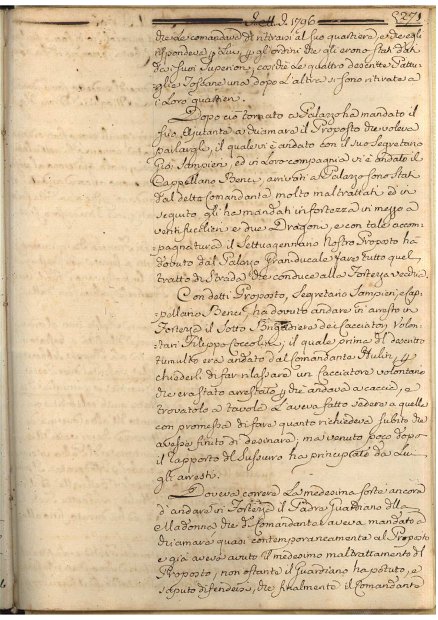 1796
che Le comandava di ritirarsi al suo quartiere, e che egli
rispondeva Lui, gl'ordini che gli erono stati dati
da suoi Superiori, così che Le quattro descritte Pattu-
glie Toscane una dopo L'altra si sono ritirate a
i Loro quartieri.
Dopo ciò tornato a Palazzo ha mandato il
suo Ajutante a chiamare il Proposto che voleva
parlargle, il quale vi è andato con il suo Segretario
Gio: Sampieri, ed in Loro compagnia vi è andato il
Cappellano Benci, arrivati a Palazzo sono stati
dal detto Comandante molto maltrattati, ed in
seguito gli ha mandati in fortezza in mezzo a
venti fucilieri e due Dragoni, e con tale accom-
pagnatura il Settuagennario Nostro Proposto ha
dovuto dal Palazzo Gran ducale fare tutto quel
tratto di Strada che conduce alla Fortezza vecchia.
Con detti Proposto, Segretario Sampieri, e Cap-
pellano Benci, ha dovuto andare in arresto in
Fortezza il Sotto Brigadiere de Cacciatori Volon-
tari Filippo Coccolini, il quale prima del descritto
tumulto era andato dal Comandante Hulin,
chiederli di far rilassare un Cacciatore volontario
che era stato arrestato che andava a caccia, e
trovatolo a tavola L'aveva fatto sedere a quella
con promessa di fare quanto richiedeva subito che
avesse finito di desinare, ma venuto poco dopo
il rapporto del Sussurro ha principiato da Lui
gli arresti.
Doveva correre La medesima sorte ancora
d'andare in Fortezza il Padre Guardiano della
Madonna che il Comandante aveva mandato a
chiamare quasi contemporaneamente al Proposto
e già aveva avuto il medesimo maltrattamento del
Proposto, non ostante il Guardiano ha potuto, e
saputo difendersi, che finalmente il Comandante